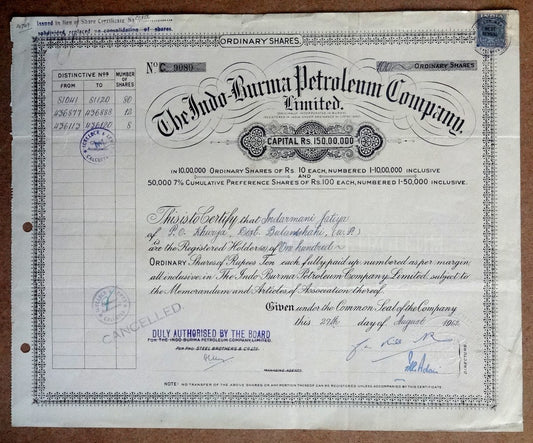 Issued in lieu of Share Certificate No
subdivided replaced on consolidation of shares.
ORDINARY SHARES.
DISTINCTIVE Nos NUMBER OF SHARES
FROM TO
81041 81120 80
436877 436888 12
8
No C 9989 ORDINARY SHARES
The Indo-Burma Petroleum Company,
Limited.
CAPITAL Rs. 150,00,000
IN 10,00,000 ORDINARY SHARES OF RS. 10 EACH, NUMBERED 1-10,00,000 INCLUSIVE
AND
50,000 7% CUMULATIVE PREFERENCE SHARES OF RS. 100 EACH, NUMBERED 1-50,000 INCLUSIVE.
This is to Certify that Indarmani Jatiya
of P.O. Khurja, Dist. Bulandshahr, (U.P.)
are the Registered Holder(s) of One hundred
ORDINARY Shares of Rupees Ten each, fully paid up, numbered as per margin,
all inclusive, in The Indo-Burma Petroleum Company, Limited, subject to
the Memorandum and Articles of Association thereof.
Given under the Common Seal of the Company
this 29th day of August 1962
CANCELLED
DULY AUTHORISED BY THE BOARD
FOR THE INDO-BURMA PETROLEUM COMPANY, LIMITED.
FOR PRO. STEEL BROTHERS & CO. LTD.
MANAGING AGENTS.
DIRECTORS.
NOTE: NO TRANSFER OF THE ABOVE SHARES OR ANY PORTION THEREOF CAN BE REGISTERED UNLESS ACCOMPANIED BY THIS CERTIFICATE.